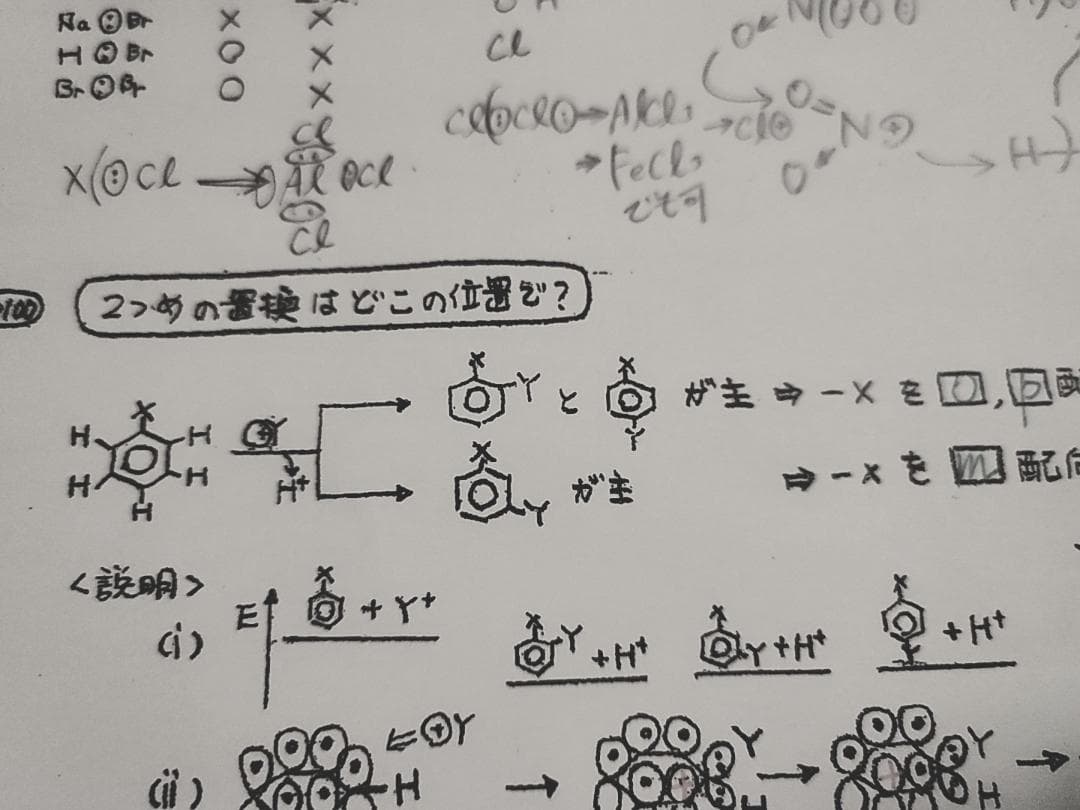 Na Br × ×
H Br ○ ×
Br Br ○ ×
Cl
N
O
Cl
X Cl → Al Cl
Cl
Cl Cl → AlCl₃ → Cl⊕
→ FeCl₃
でも可
O N ⊕
O
H
100
2つめの置換はどこの位置で?
X
H H
H H
H
⊕Y
H⁺
X Y と X Y が主 ⇒ -X を o , p 配
X Y が主 ⇒ -X を m 配向
<説明>
(i) E X + Y⁺
X Y + H⁺
X Y + H⁺
X Y + H⁺
(ii) ⇐ ⊕Y
H → Y H → Y H →